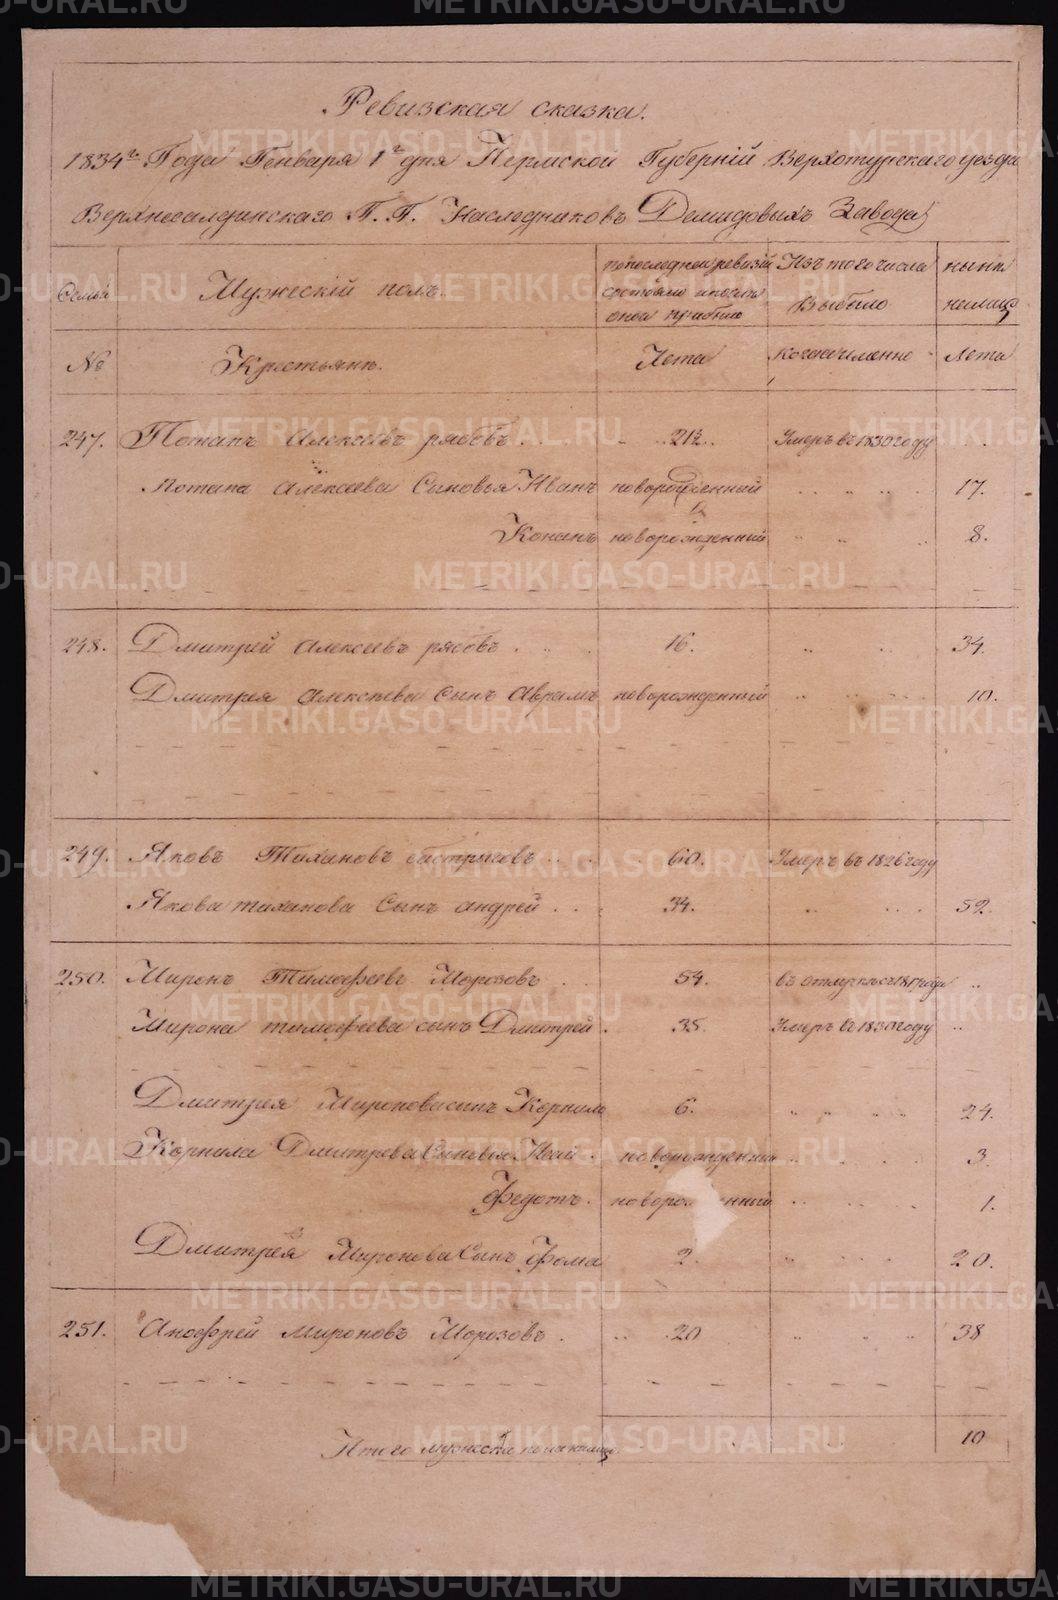 Ревизская сказка.
1834го Года Генваря 1го дня Пермской Губернiй Верхотурскаго уезда
Верхнесалдинскаго Г. Г. Наследниковъ Демидовыхъ Завода
Семей Мужескiй полъ. по последней ревизiй состояло и после оной прибыло Изъ того числа Выбыло ныне налицо
№ Крестьянъ. Лета Когда именно Лета
247. Потапъ Алексеевъ рябовъ . . 21½ Умеръ въ 1830 году
Потапа Алексеева Сыновья Иванъ новорожденный 17.
Кононъ новорожденный 8.
248. Дмитрей Алексеевъ рябовъ . 16. 34.
Дмитрея Алексеева Сынъ Аврамъ новорожденный 10.
249. Яковъ Тихановъ . . 60. Умеръ въ 1826 году
Якова тиханова Сынъ андрей . . 34. 52.
250. Миронъ Тимофеевъ Морозовъ . . 54.
Мирона тимофеева сынъ Дмитрей . 35. Умеръ въ 1830 году
Дмитрея Миронова сынъ Корнило 6. 24.
Корнила Дмитрева Сыновья . новорожденный 3.
Федотъ. новоро нный 1.
Дмитрея Миронова Сынъ Фома 2. 20.
251. Анофрей мироновъ Морозовъ . 20 38
Итого мужеска пола налицо. 10
METRIKI.GASO-URAL.RU